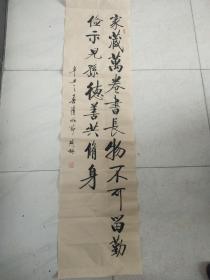 家藏萬卷書長物不可留勤
儉示兒孫德善共脩身